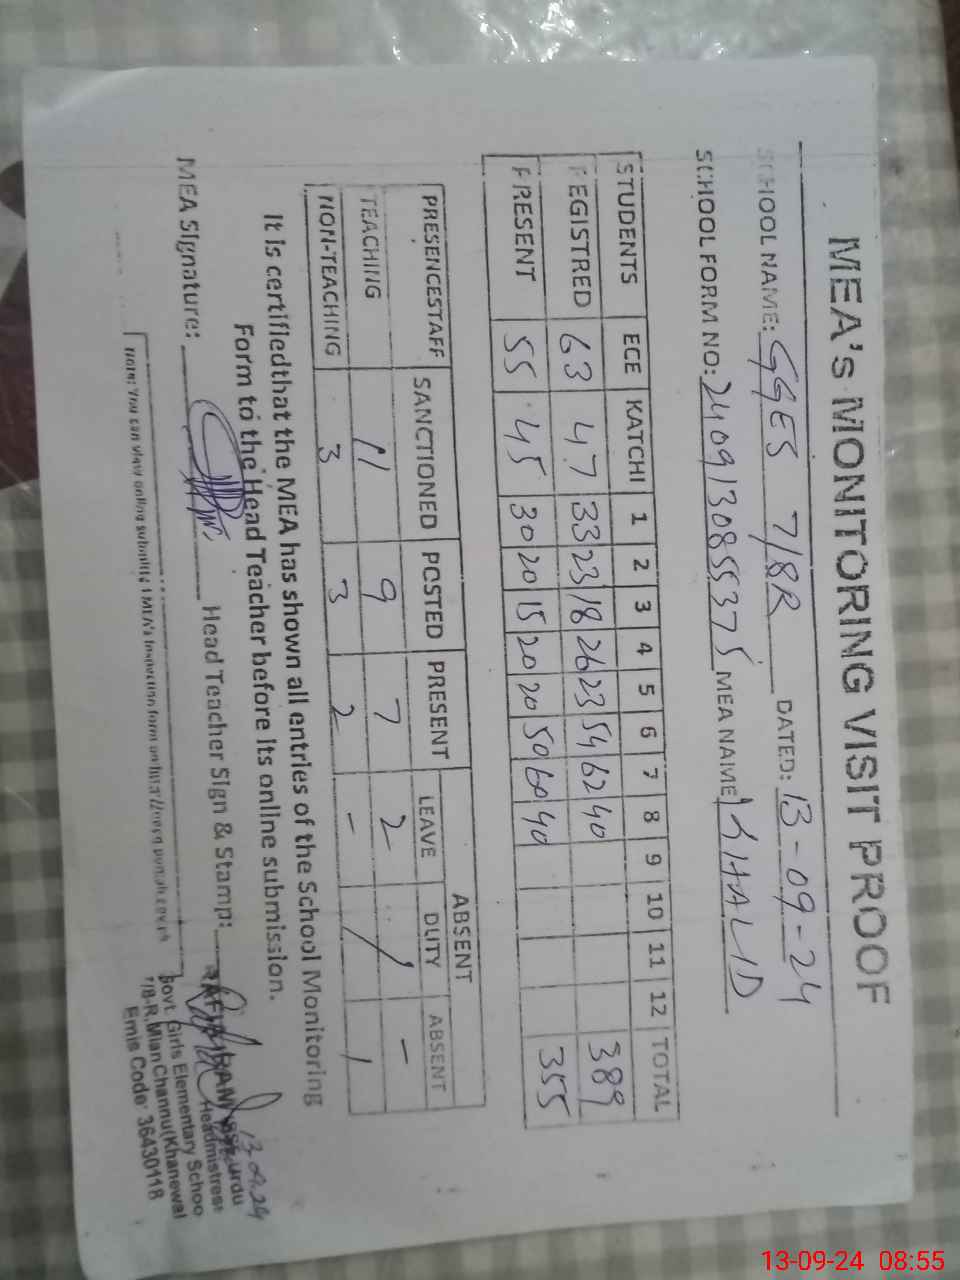 MEA's MONITORING VISIT PROOF
SCHOOL NAME: GGES 7/8R DATED: 13-09-24
SCHOOL FORM NO: 2409130855375 MEA NAME KHALID
STUDENTS ECE KATCHI 1 2 3 4 5 6 7 8 9 10 11 12 TOTAL
REGISTRED 63 47 33 23 18 26 23 54 62 40 389
PRESENT 55 45 30 20 15 20 20 50 60 40 355
ABSENT
PRESENCESTAFF SANCTIONED POSTED PRESENT LEAVE DUTY ABSENT
TEACHING 11 9 7 2 / -
NON-TEACHING 3 3 2 - / /
It is certifiedthat the MEA has shown all entries of the School Monitoring
Form to the Head Teacher before its online submission.
MEA Signature: Head Teacher Sign & Stamp:
13.09.24
Headmistress
Govt. Girls Elementary Schoo
7/8-R, Mian Channu(Khanewal
Emis Code: 36430118
Note: You can view online submitted MEA's Inspection form on
13-09-24 08:55